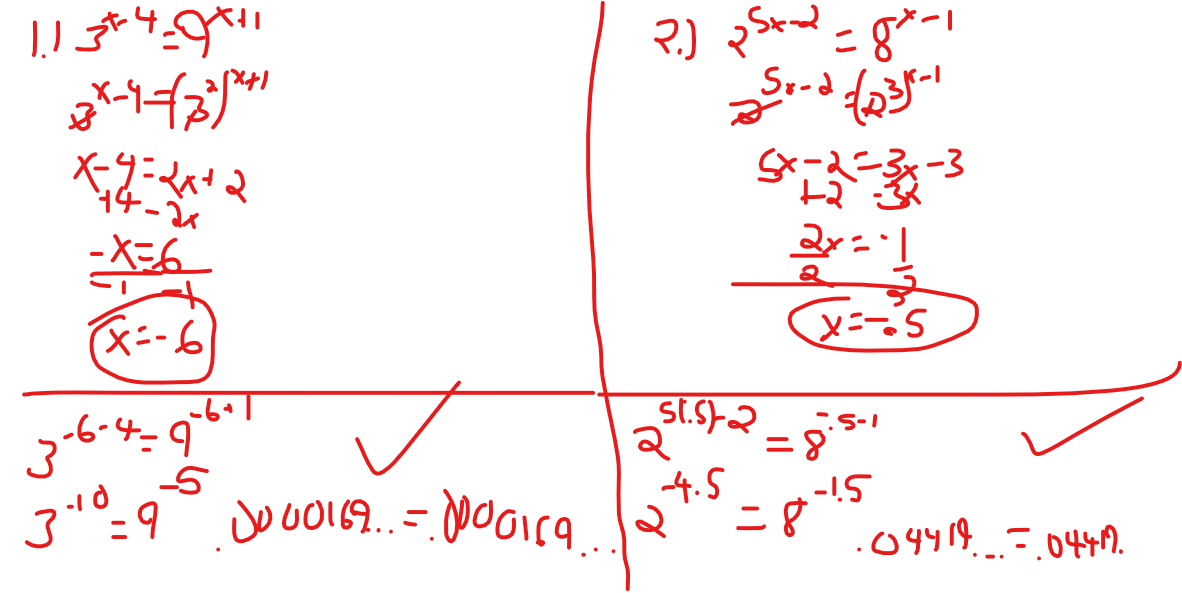 1.) 3^(x-4) = 9^(x+1)
3^(x-4) = (3^2)^(x+1)
x-4 = 2x+2
+4 -2x
-x = 6
-1 -1
x = -6
3^(-6-4) = 9^(-6+1)
3^(-10) = 9^(-5)
.0000169... = .0000169...
2.) 2^(5x-2) = 8^(x-1)
2^(5x-2) = (2^3)^(x-1)
5x-2 = 3x-3
+2 -3x
2x = -1
2 2
x = -.5
2^(5(.5)-2) = 8^(-.5-1)
2^(-4.5) = 8^(-1.5)
.04419... = .04419